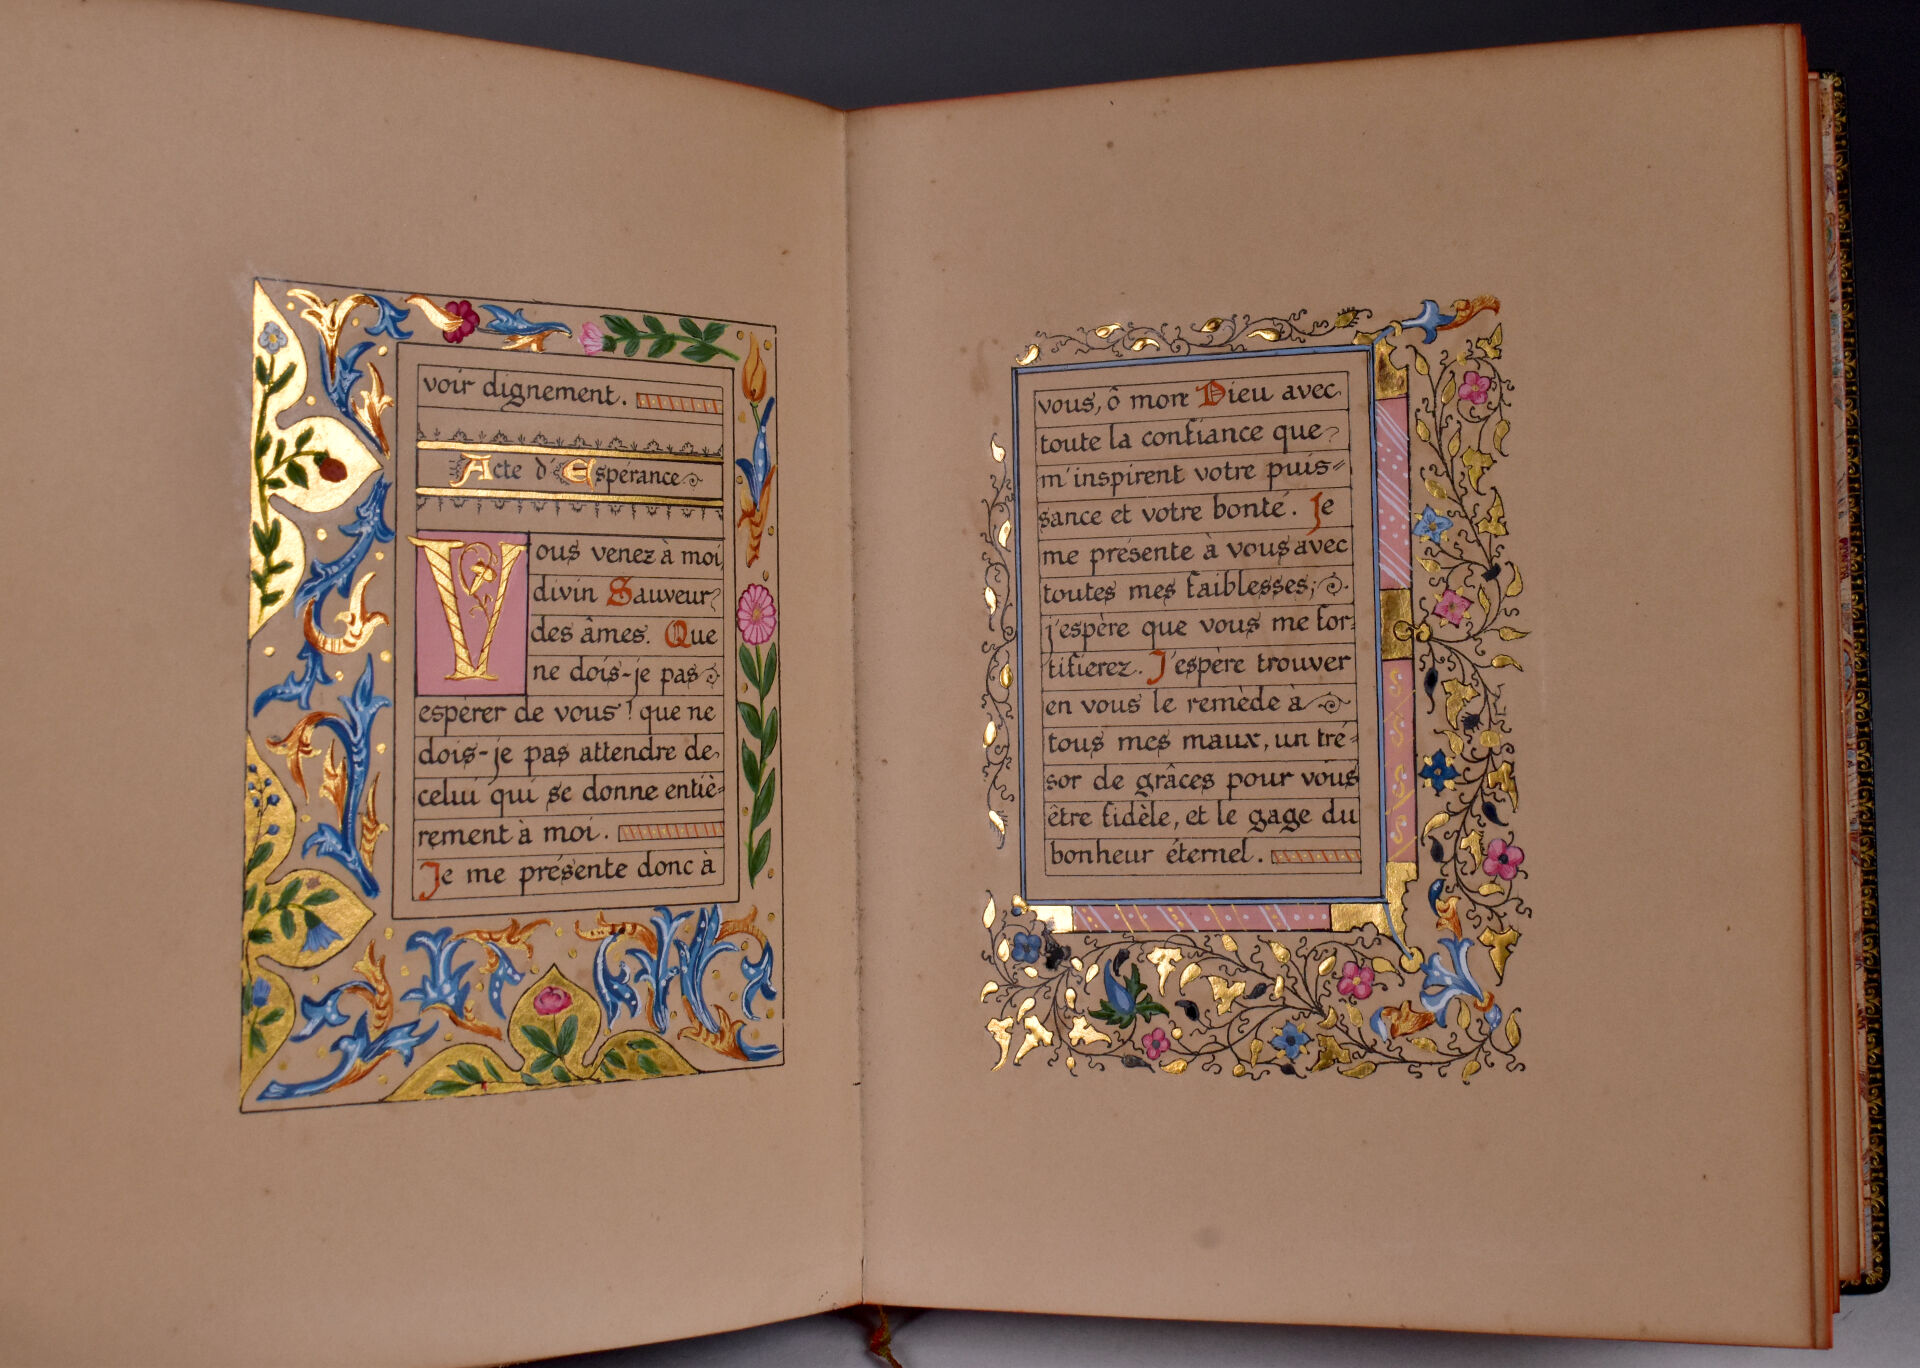 voir dignement.
Acte d'Espérance
Vous venez à moi
divin Sauveur
des âmes. Que
ne dois-je pas
espérer de vous! que ne
dois-je pas attendre de
celui qui se donne entiè=
rement à moi.
Je me présente donc à
vous, ô mon Dieu avec
toute la confiance que
m'inspirent votre puis=
sance et votre bonté. Je
me présente à vous avec
toutes mes faiblesses;
j'espère que vous me for=
tifierez. J'espère trouver
en vous le remède à
tous mes maux, un tré=
sor de grâces pour vous
être fidèle, et le gage du
bonheur éternel.